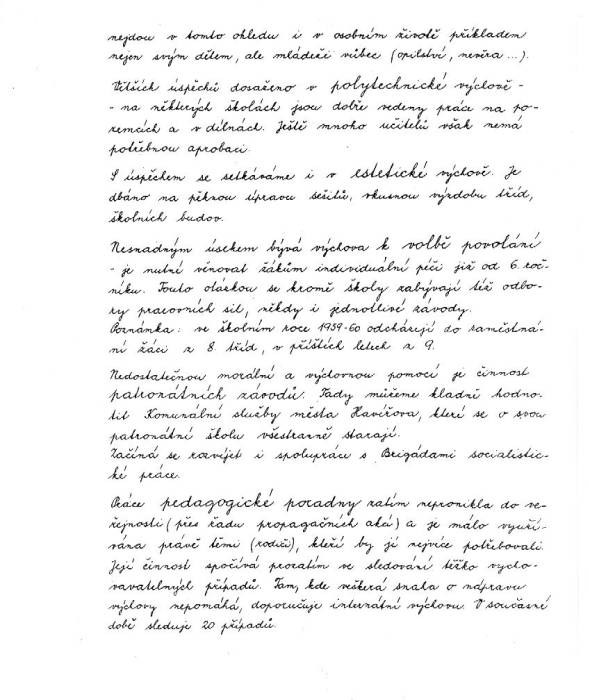 nejdou v tomto ohledu i v osobním životě příkladem
nejen svým dětem, ale mládeži vůbec (opilství, nevěra ...).
Větších úspěchů dosaženo v polytechnické výchově -
- na některých školách jsou dobře vedeny práce na po-
zemcích a v dílnách. Ještě mnoho učitelů však nemá
potřebnou aprobaci.
S úspěchem se setkáváme i v estetické výchově. Je
dbáno na pěknou úpravu sešitů, vkusnou výzdobu tříd,
školních budov.
Nesnadným úsekem bývá výchova k volbě povolání
- je nutné věnovat žákům individuální péči již od 6. roč-
níku. Touto otázkou se kromě školy zabývají též odbo-
ry pracovních sil, někdy i jednotlivé závody.
Poznámka: ve školním roce 1959-60 odcházejí do zaměstná-
ní žáci z 8. tříd, v příštích letech z 9.
Nedostatečnou morální a výchovnou pomocí je činnost
patronátních závodů. Tady můžeme kladně hodno-
tit Komunální služby města Havířova, které se o svou
patronátní školu všestranně starají.
Začíná se rozvíjet i spolupráce s Brigádami socialistic-
ké práce.
Práce pedagogické poradny zatím nepronikla do ve-
řejnosti (přes řadu propagačních akcí) a je málo využí-
vána právě těmi (rodiči), kteří by ji nejvíce potřebovali.
Její činnost spočívá prozatím ve sledování těžko vycho-
vavatelných případů. Tam, kde veškerá snaha o nápravu
výchovy nepomáhá, doporučuje internátní výchovu. V současné
době sleduje 20 případů.